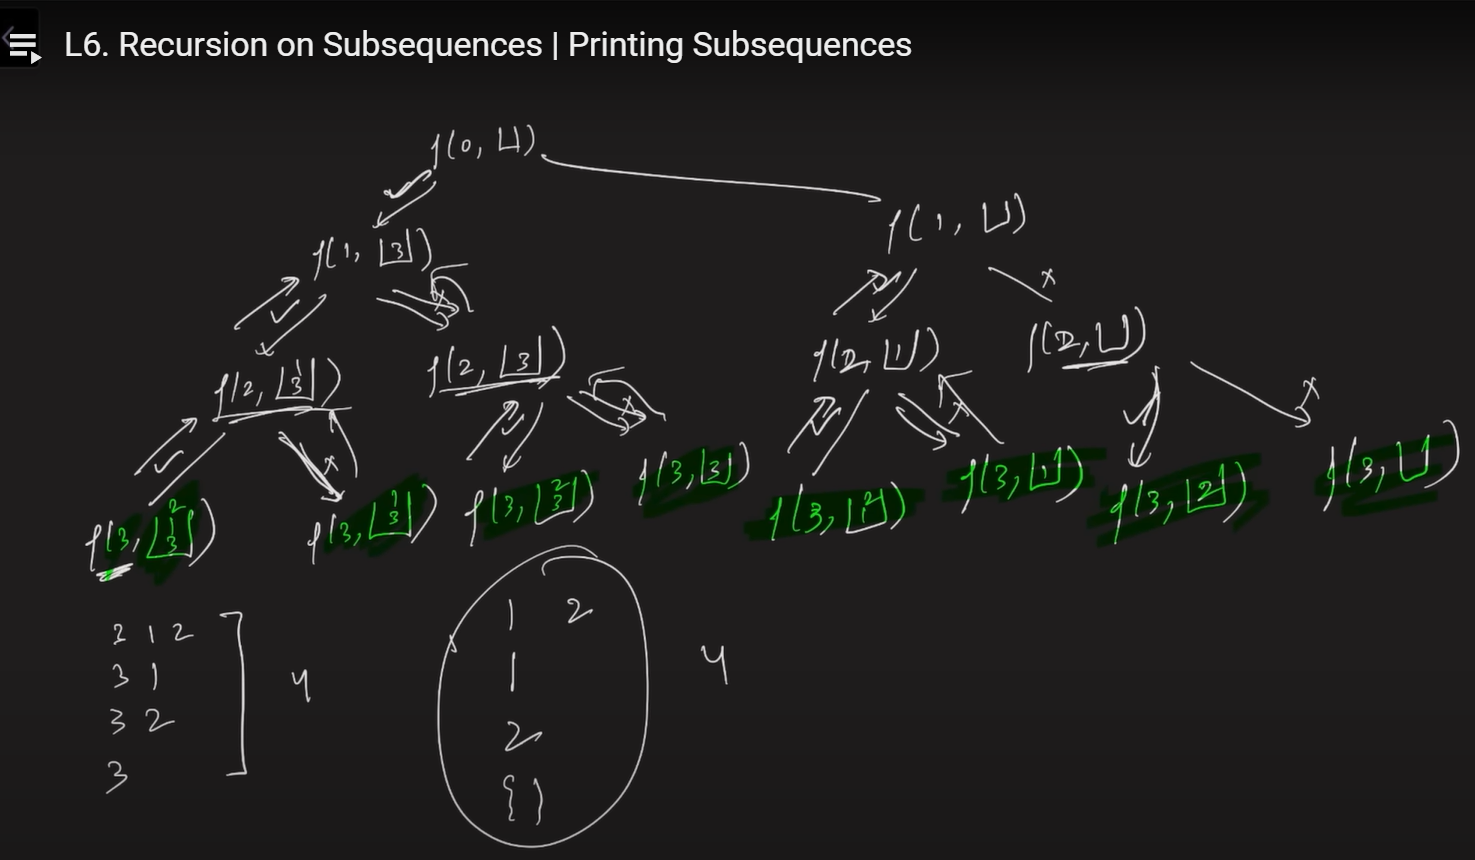 L6. Recursion on Subsequences | Printing Subsequences
f(0, [])
f(1, [3]) f(1, [])
f(2, [1 3]) f(2, [3]) f(2, [1]) f(2, [])
f(3, [2 1 3]) f(3, [1 3]) f(3, [2 3]) f(3, [3]) f(3, [2 1]) f(3, [1]) f(3, [2]) f(3, [])
3 1 2 1 2
3 1 4 1 4
3 2 2
3 { }